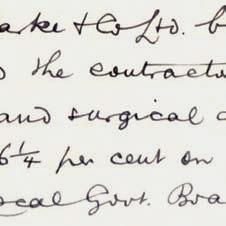 arke & Co Ltd. b
the contracto
and surgical
6¼ per cent on
ocal Govt. Bra